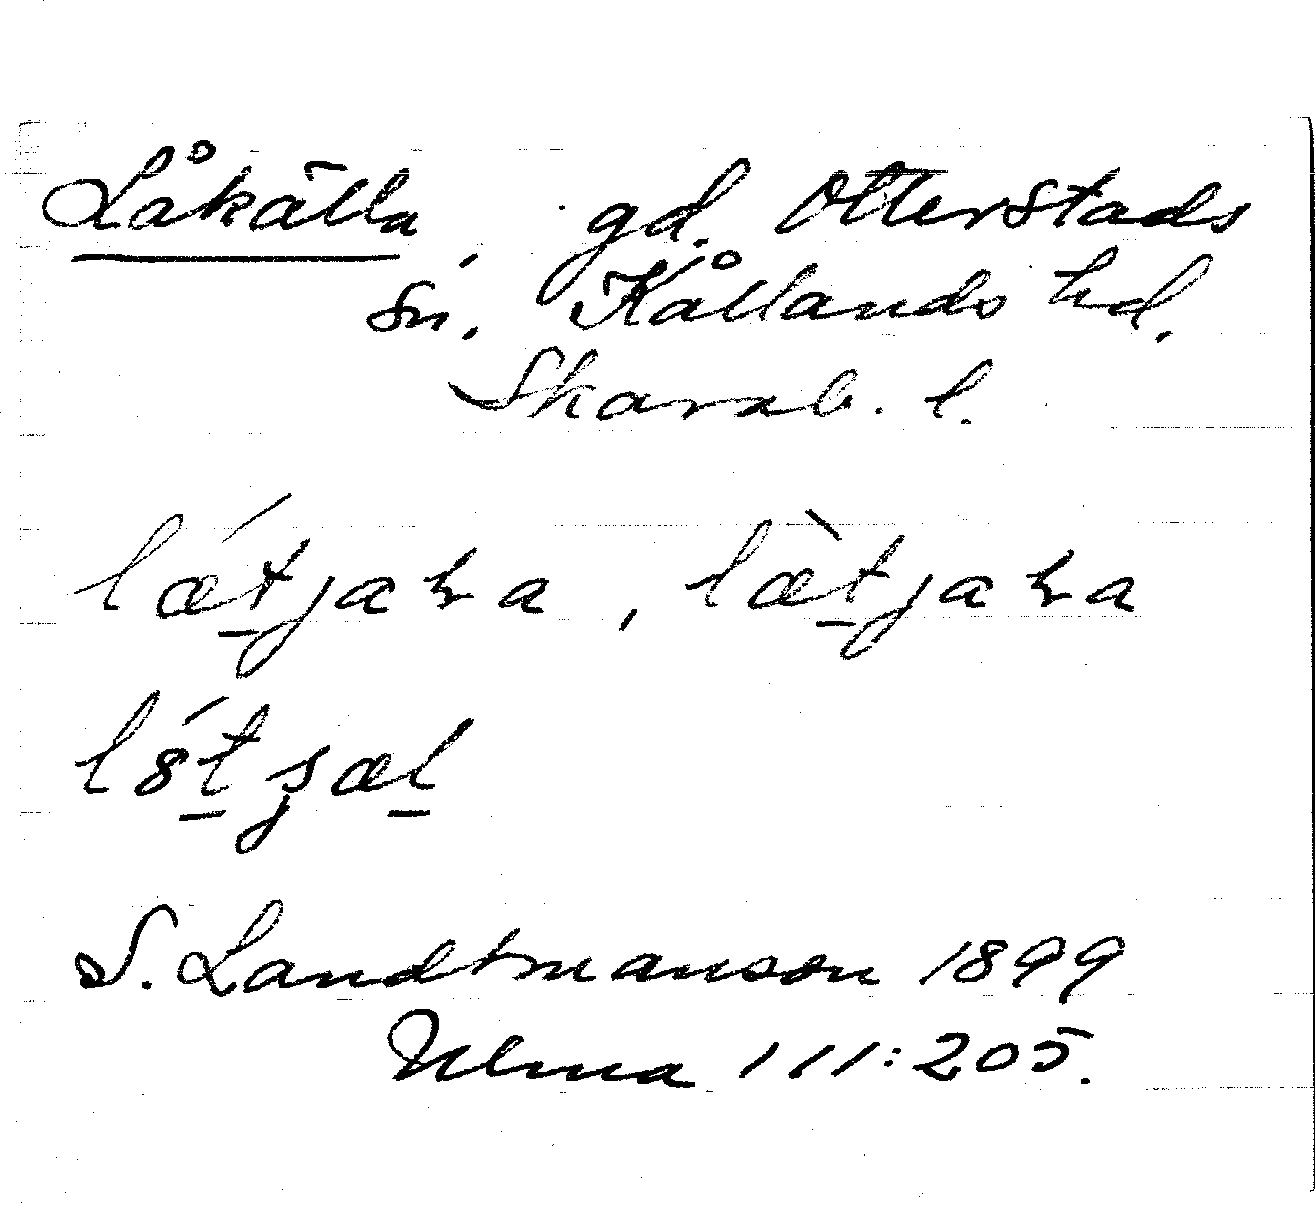 Låkälla, gd. Otterstads
sn. Kållands hd.
Skarab. l.
lǽtjaka, læ̀tjaka
S. Landtmanson 1899
Ulma 111:205.